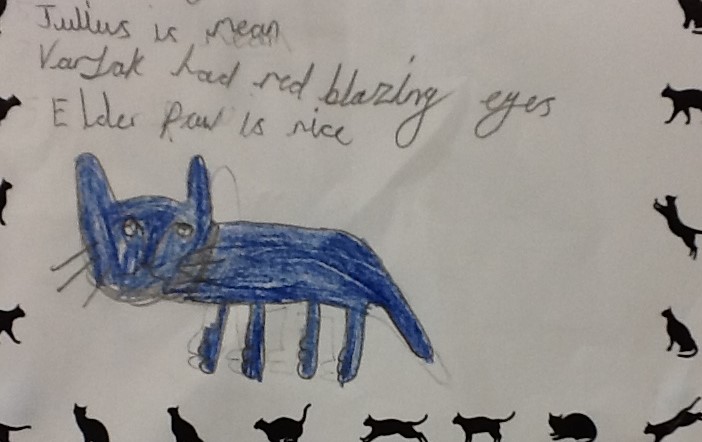 Julius is mean
Varjak had red blazing eyes
Elder Paw is nice